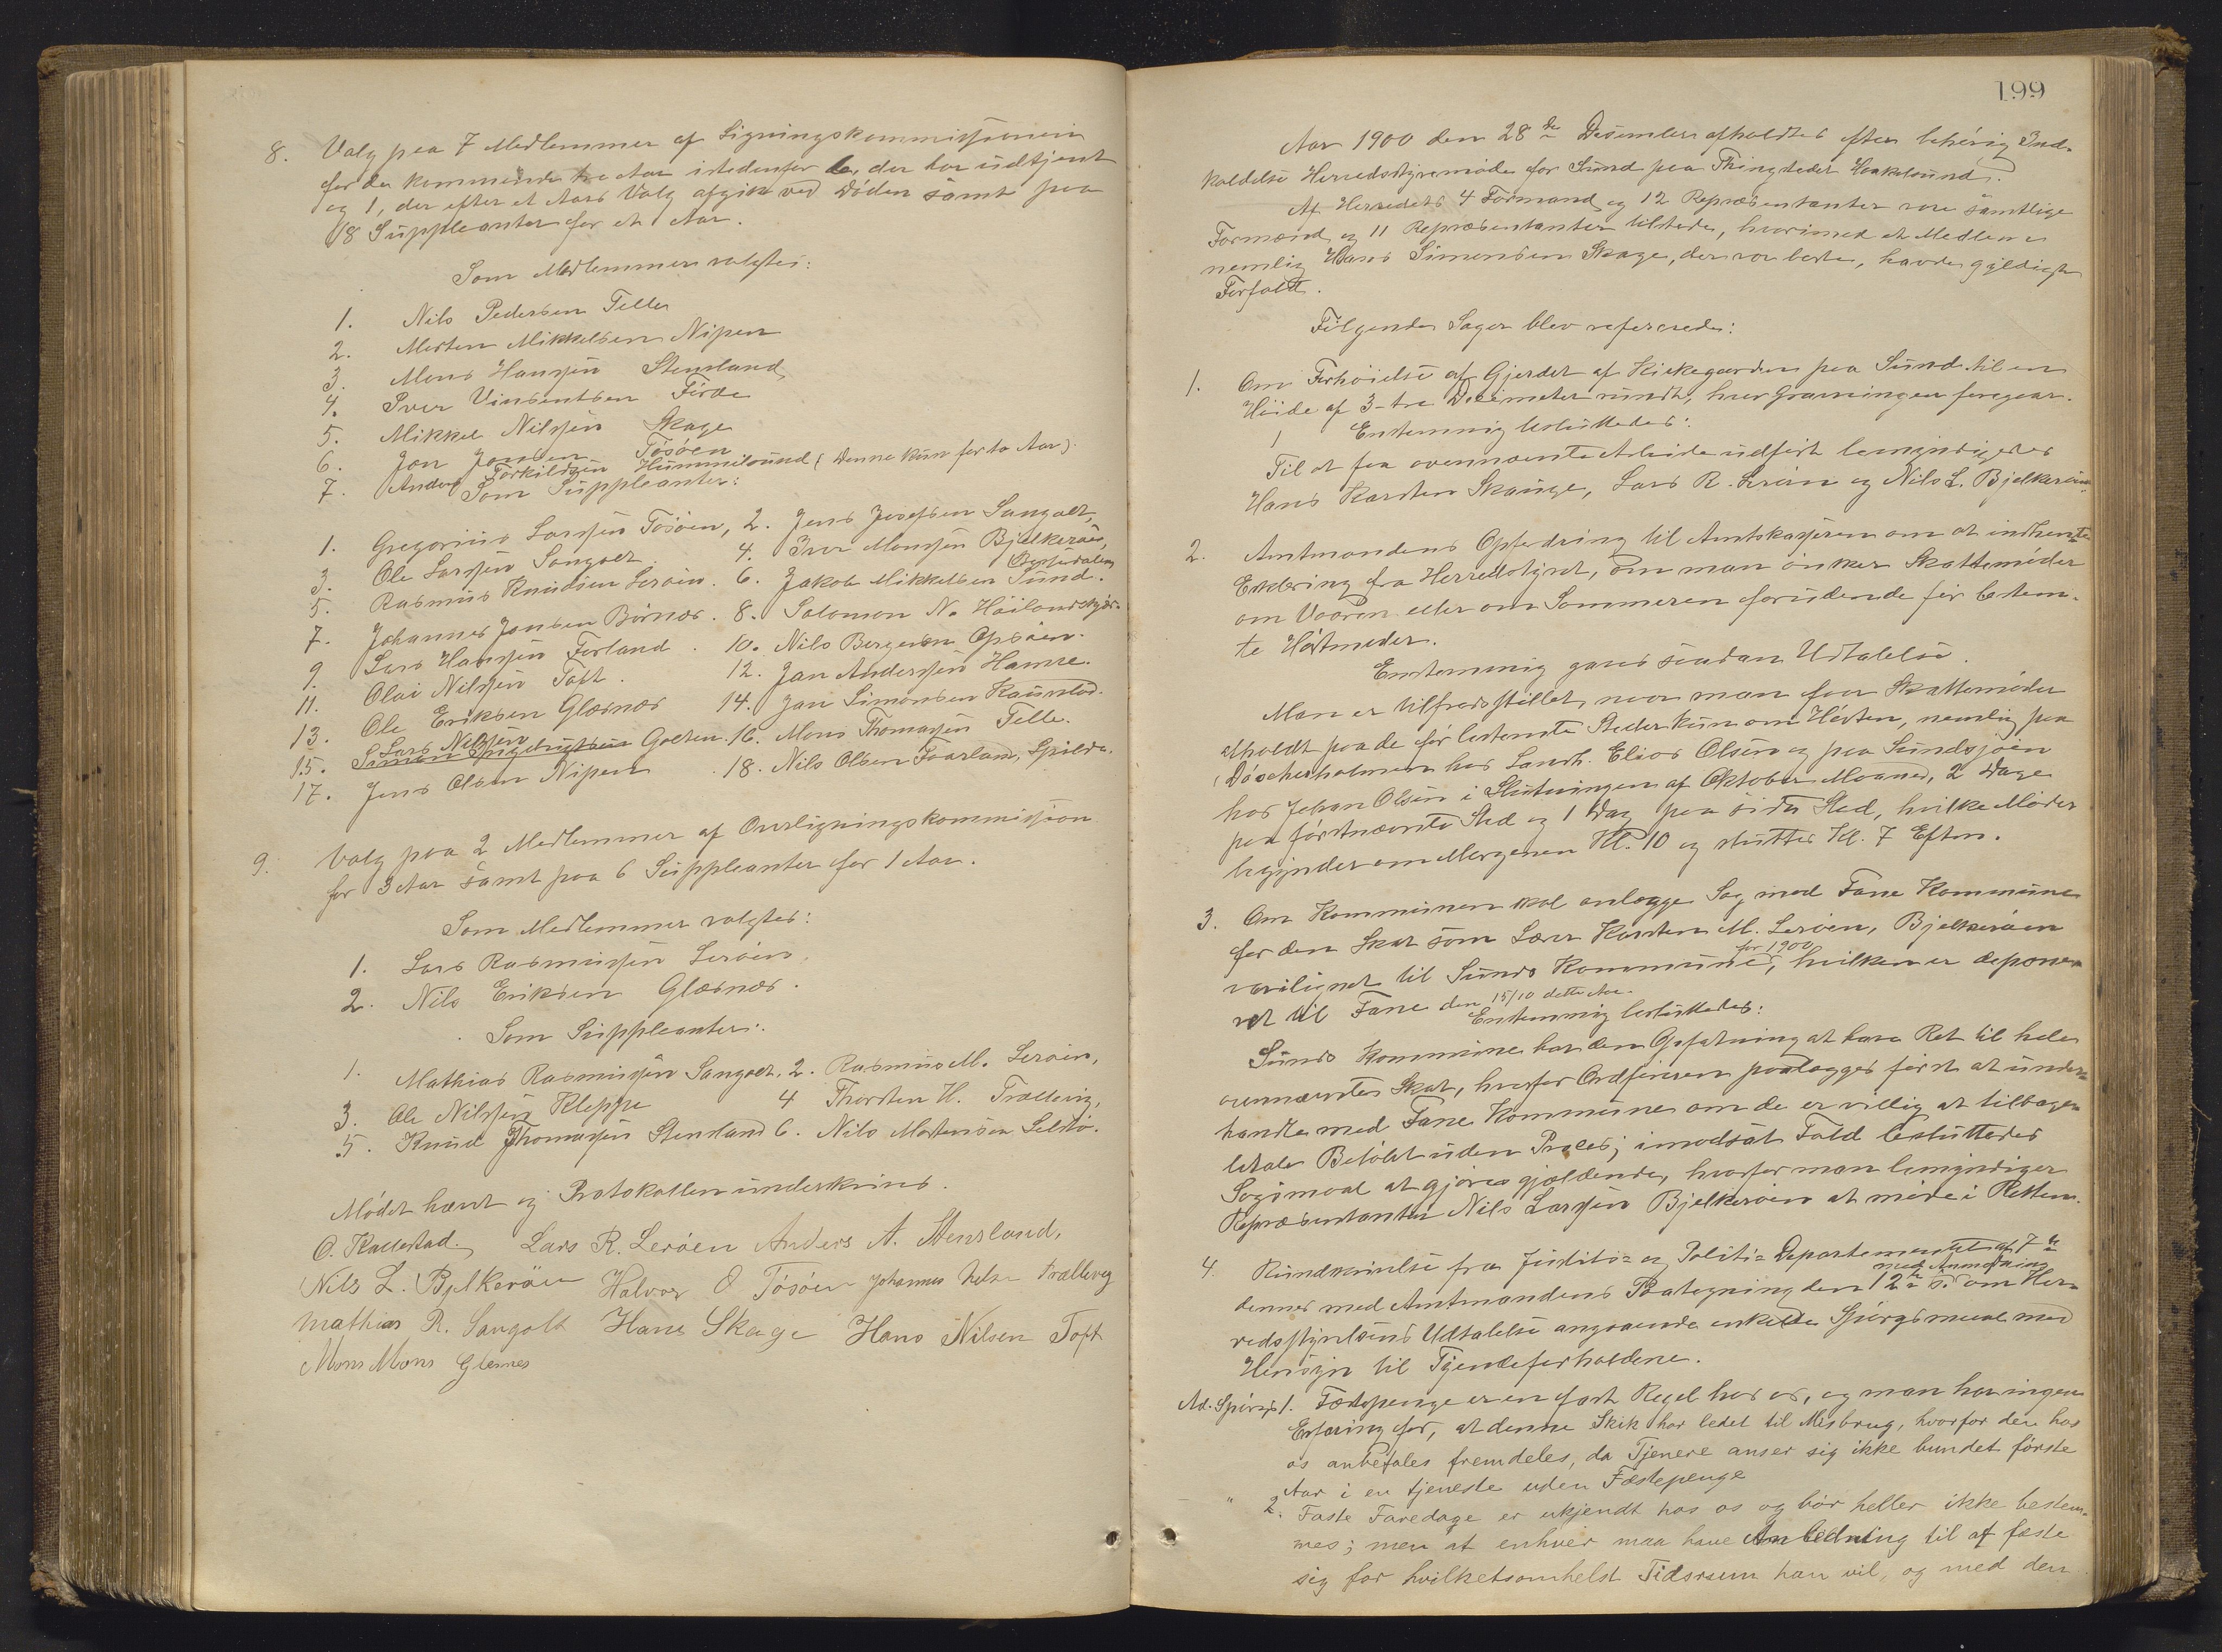 8. Valg paa 7 Medlemmer af Ligningskommissionen
for de kommende tre Aar istedenfor 6, der har udtjent
og 1, der efter et Aars Valg afgik ved Døden samt paa
18 Suppleanter for et Aar.
Som Medlemmer valgtes:
1. Nils Pedersen Telle
2. Morten Mikkelsen Nipen
3. Mons Hanssen Stensland
4. Iver Vinsentsen Førde
5. Mikkel Nilssen Skage
6. Jon Jonsen Tøsøen
7. Anders Torkildsen Hummelsund (denne kun for to Aar).
Som Suppleanter:
1. Gregorius Larssen Tøsøen, 2. Jens Josefsen Sangolt,
3. Ole Larssen Sangolt 4. Iver Monssen Bjelkerøen,
5. Rasmus Knudsen Lerøen. 6. Jakob Mikkelsen Sund.
7. Johannes Jansen Børnes. 8. Salomon N. Høilandskjær
9. Lars Hanssen Forland. 10. Nils Bergesen Opsøen.
11. Olai Nilssen Toft. 12. Jan Anderssen Hamre.
13. Ole Eriksen Glæsnes 14. Jan Simonsen Kausland.
15. Lars Nilssen Golten. 16. Mons Thomassen Telle.
17. Jens Olsen Nipen 18. Nils Olsen Faarland, Spilde.
9. Valg paa 2 Medlemmer af Overligningskommission
for 3 Aar samt paa 6 Suppleanter for 1 Aar.
Som Medlemmer valgtes:
1. Lars Rasmussen Lerøen.
2. Nils Eriksen Glæsnes.
Som Suppleanter:
1. Mathias Rasmussen Sangolt, 2. Rasmus M. Lerøen,
3. Ole Nilssen Kleppe 4 Thorsten H. Trællevig,
5. Knud Thomassen Stensland 6. Nils Mortensen Selstø.
Mødet hævet og Protokollen underskrives.
O. Kallestad. Lars R. Lerøen Anders A. Stensland,
Nils L. Bjelkerøen Halvor O Tøsøen Johannes Helse Trælleveg
Mathias R. Sangolt Hans Skage Hans Nilsen Toft
Mons Mons Glesnes
199
Aar 1900 den 28de Desember afholdtes efter behørig Ind-
kaldelse Herredsstyremøde for Sund paa Thingstedet Haakelsund.
Af Herredets 4 Formænd og 12 Repræsentanter vare samtlige
Formænd og 11 Repræsentanter tilstede, hvorimod et Medlem
nemlig Hans Simonsen Skage, der var borte, havde gyldigt
Forfald.
Følgende Sager blev refererede:
1. Om Forhøielse af Gjerdet af Kirkegaarden paa Sund til en
Høide af 3-tre Decemeter rundt, hvor Gravningen foregaar.
Enstemmig besluttedes:
Til at faa ovennævnte Arbeide udført bemyndigedes
Hans Karsten Skauge, Lars R. Lerøen og Nils L. Bjelkerøen.
2. Amtmandens Opfordring til Amtskasseren om at indhente
Erklæring fra Herredsstyret, om man ønsker Skattemøder
om Vaaren eller om Sommeren forudende før bestem-
te Høstmøder.
Enstemmig gaves saadan Udtalelse.
Man er tilfredsstillet, naar man faar Skattemøder
afholdt paa de før bestemte Steder kun om Høsten, nemlig paa
hos Landh. Elias Olsen og paa Sundsjøen
hos Johan Olsen i Slutningen af Oktober Maaned, 2 Dage
paa førstnævnte Sted og 1 Dag paa sidste Sted, hvilke Møder
begynder om Morgenen Kl. 10 og sluttes Kl. 7 Eftm.
3. Om Kommunen skal anlægge Sag mod Fane Kommune
for den Skat som Lærer Karsten M. Lerøen, Bjelkerøen
var ilignet til Sunds Kommune for 1900, hvilken er depone-
ret til Fane den 15/10 dette Aar.
Enstemmig besluttedes:
Sunds Kommune har den Opfatning at have Ret til hele
ovennævnte Skat, hvorfor Ordføreren paalægges først at under-
handle med Fane Kommune om de er villig at tilbage-
betale Beløbet uden Proces; i modsat Fald besluttedes
Søgsmaal at gjøres gjældende, hvorfor man bemyndiger
Repræsentanten Nils Larssen Bjelkerøen at møde i Retten.
4. Rundskrivelse fra Justits- og Politi-Departementet af 7de
dennes med Amtmandens Paategning den 12te s.M. med Anmodning om Her-
redsstyrelsens Udtalelse angaaende enkelte Spørgsmaal med
Hensyn til Tjendeforholdene.
Ad. Spørgs 1. Fæstepenge er en fast Regel hos os, og man har ingen
Erfaring for, at denne Skik har ledet til Misbrug, hvorfor den hos
os anbefales fremdeles, da Tjenere anser sig ikke bundet første
Aar i en tjeneste uden Fæstepenge
" 2. Faste Faredage er ukjendt hos os og bør heller ikke bestem-
mes; men at enhver maa have Anledning til at fæste
sig for hvilketsomhelst Tidsrum han vil, og med den